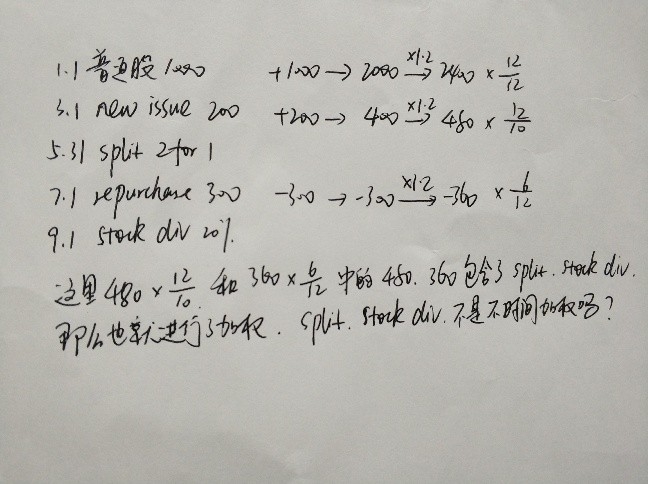 1.1 普通股 1000 +1000 → 2000 ×1.2→ 2400 × 12/12
3.1 new issue 200 +200 → 400 ×1.2→ 480 × 12/10
5.31 split 2 for 1
7.1 repurchase 300 -300 → -300 ×1.2→ -360 × 6/12
9.1 stock div 20%.
这里 480 × 12/10 和 360 × 6/12 中的 480. 360 包含了 split. stock div.
那么也就进行了加权. split. stock div. 不是不时间加权吗?